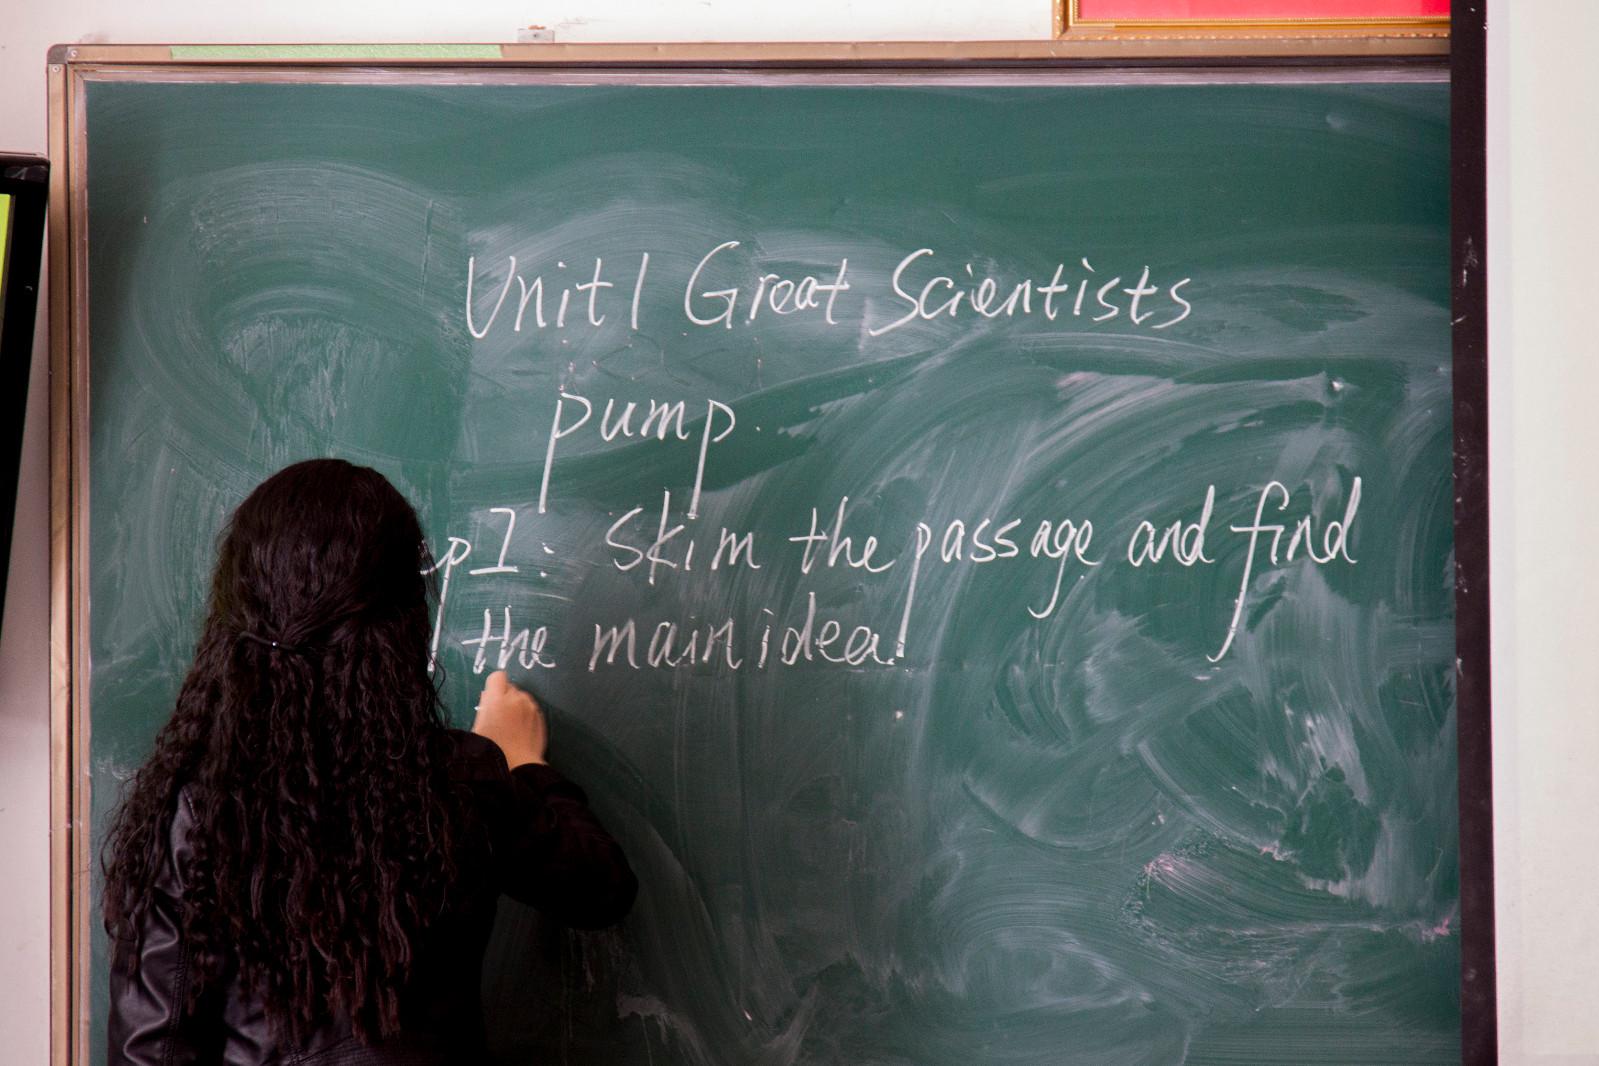 Unit 1 Great Scientists
pump.
p1: Skim the passage and find
the main idea.